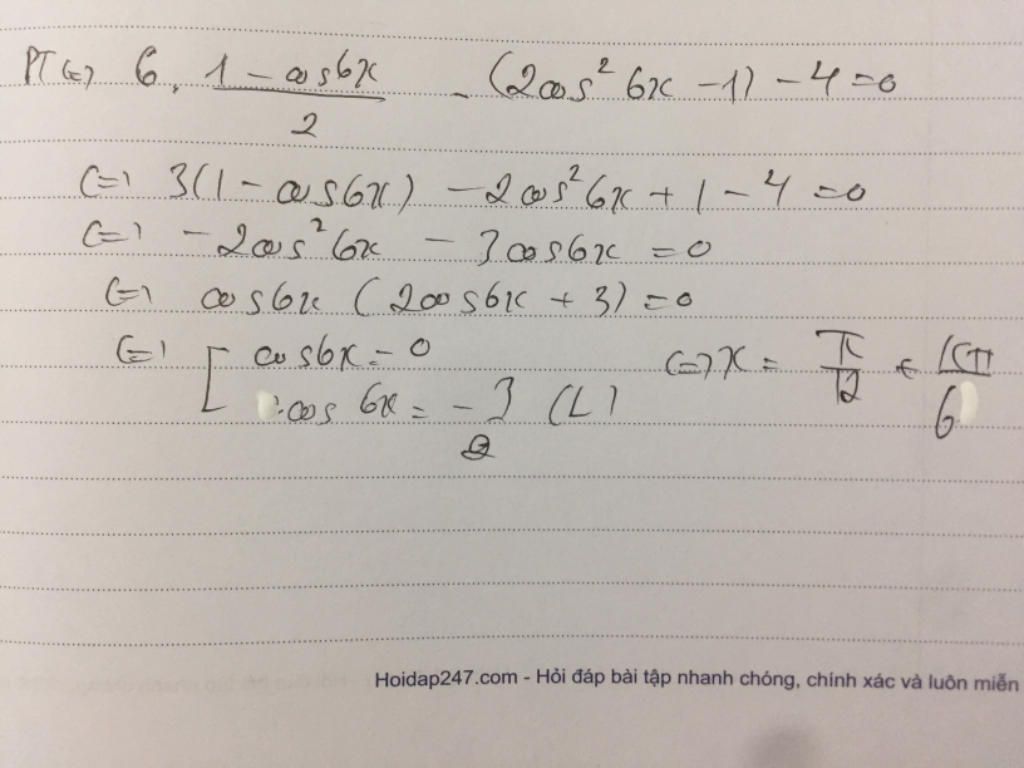 PT (=) 6. \frac{1 - cos6x}{2} - (2cos^2 6x - 1) - 4 = 0
(=) 3(1 - cos6x) - 2cos^2 6x + 1 - 4 = 0
(=) - 2cos^2 6x - 3cos6x = 0
(=) cos6x (2cos6x + 3) = 0
(=) [ cos6x = 0 (=) x = \frac{π}{12} + \frac{kπ}{6}
cos 6x = \frac{-3}{2} (L)
Hoidap247.com - Hỏi đáp bài tập nhanh chóng, chính xác và luôn miễn